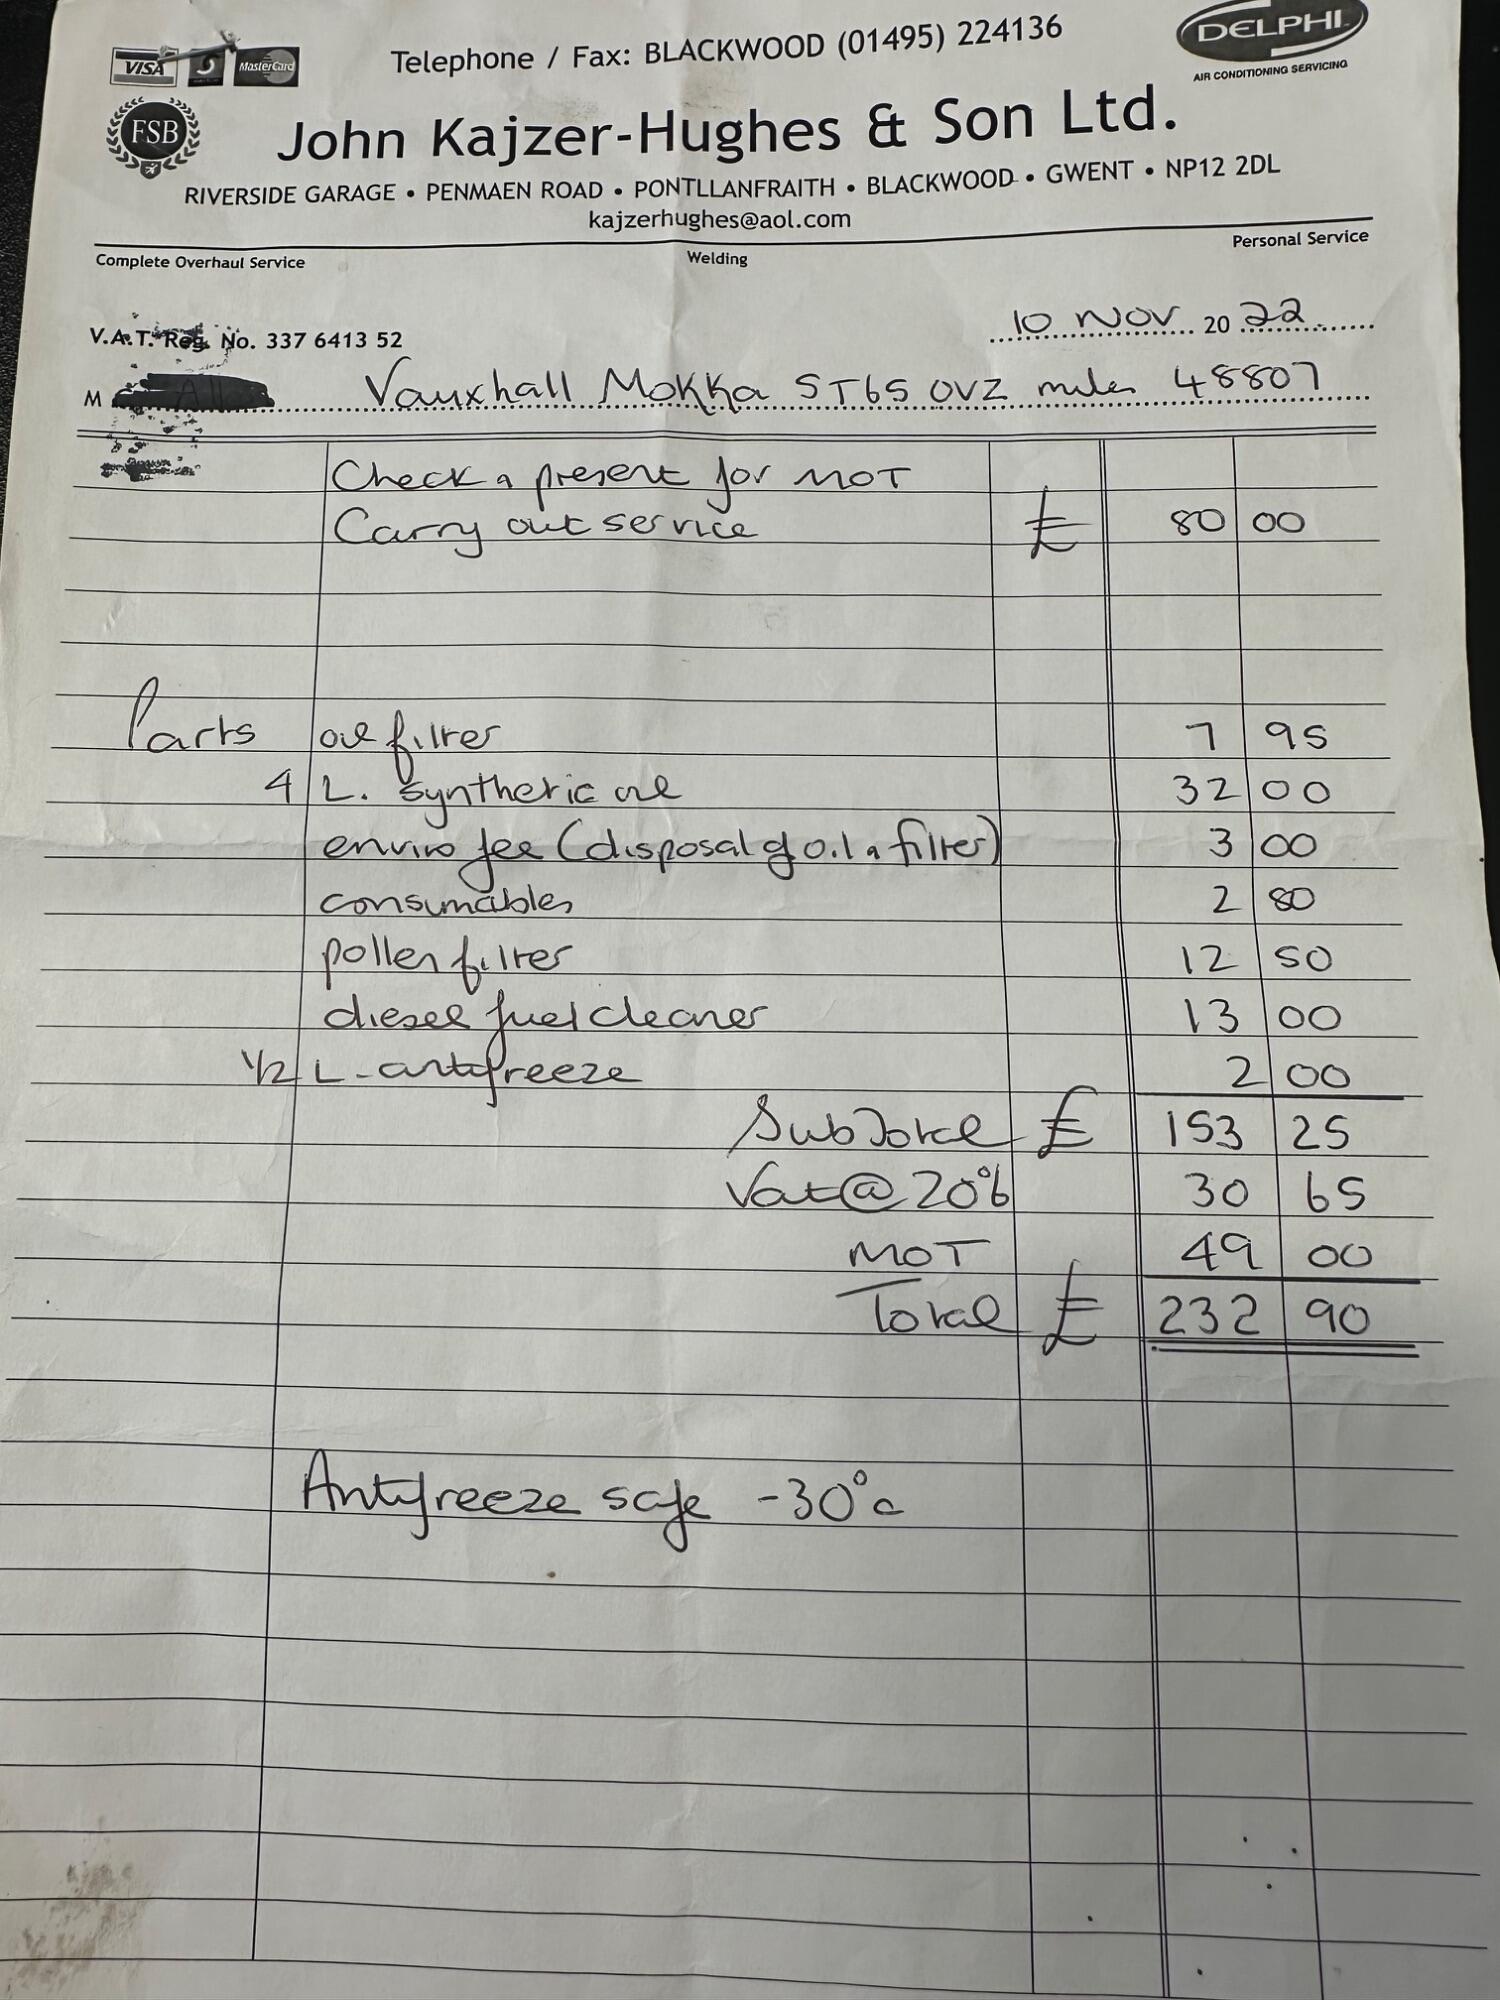 VISA MasterCard
Telephone / Fax: BLACKWOOD (01495) 224136
DELPHI
AIR CONDITIONING SERVICING
FSB
John Kajzer-Hughes & Son Ltd.
RIVERSIDE GARAGE • PENMAEN ROAD • PONTLLANFRAITH • BLACKWOOD • GWENT • NP12 2DL
kajzerhughes@aol.com
Complete Overhaul Service Welding Personal Service
V.A.T. Reg. No. 337 6413 52 10 Nov 2022
M Vauxhall Mokka ST65 OVZ miles 48807
Check & present for MOT
Carry out service £ 80 00
Parts oil filter 7 95
4 L. synthetic oil 32 00
enviro fee (disposal of oil & filter) 3 00
consumables 2 80
pollen filter 12 50
diesel fuel cleaner 13 00
1/2 L - antifreeze 2 00
SubTotal £ 153 25
Vat @ 20% 30 65
MOT 49 00
Total £ 232 90
Antifreeze safe -30°c